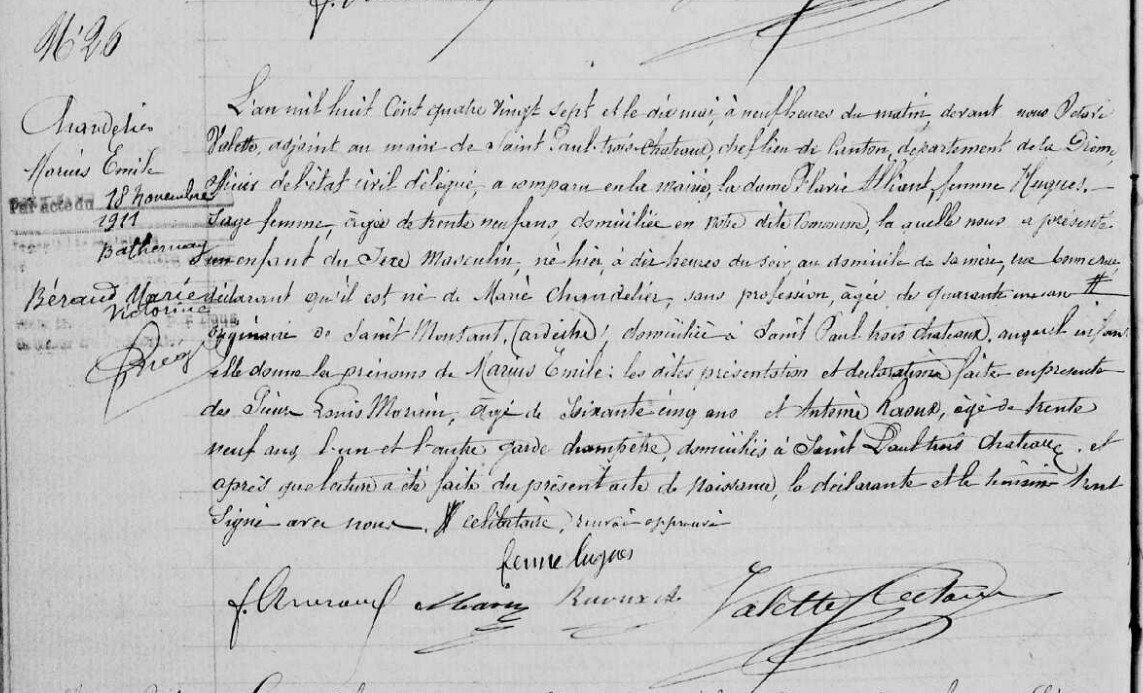 N° 26
Chandelier
Marius Emile
Par acte du 18 novembre
1911
Bathernay
Béraud Marie
Victorine
L'an mil huit cent quatre vingt sept et le dix mai, à neuf heures du matin, devant nous
Valette, adjoint au maire de Saint Paul-trois-chateaux, chef lieu de Canton, département de la Drôme,
officier de l'état civil délégué, a comparu en la mairie, la dame Flavie Alliant, femme Hugues.
Sage femme, âgée de trente neuf ans, domiciliée en notre dite Commune, la quelle nous a présenté
un enfant du Sexe Masculin, né hier, à dix heures du soir, au domicile de sa mère, rue
déclarant qu'il est né de Marie Chandelier, sans profession, âgée de quarante un an #
originaire de Saint Montant, (ardèche), domiciliée à Saint Paul trois chateaux. auquel enfant
elle donne les prénoms de Marius Emile: les dites présentation et declaration faite en présence
des Sieurs Louis , âgé de Soixante cinq ans et Antoine Raoux, âgé de trente
neuf ans, l'un et l'autre garde champêtre, domiciliés à Saint Paul trois chateaux. et
après que lecture a été faite du présent acte de Naissance, la déclarante et le témoins l'ont
Signé avec nous. # célibataire, renvoi approuvé
femme hugues
Raoux
Valette